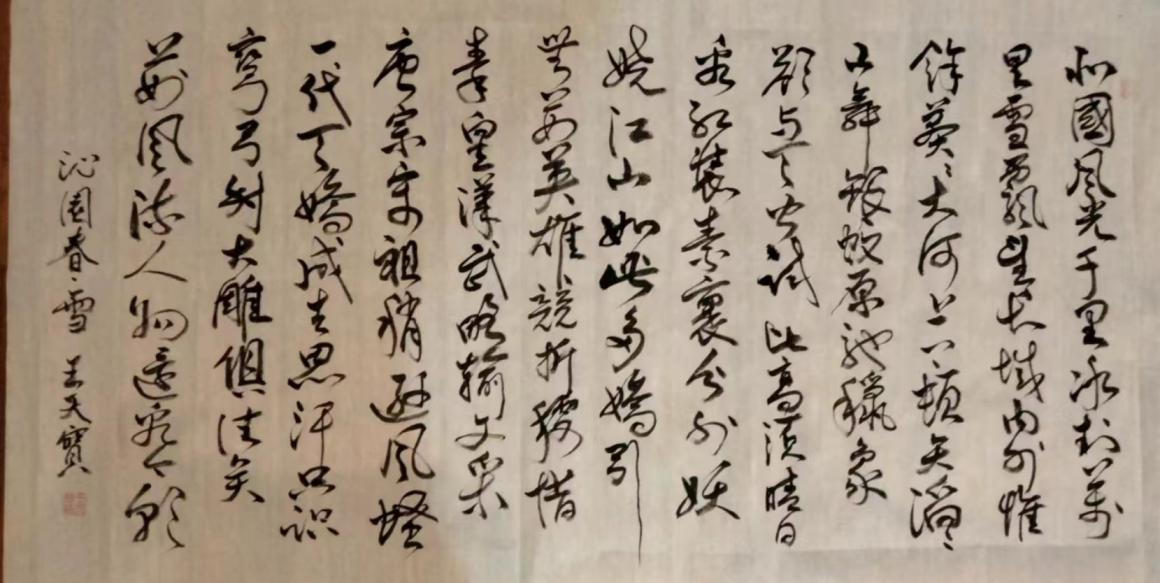 北國風光千里冰封萬
里雪飄望長城内外惟
餘莽〻大河上下頓失滔〻
山舞銀蛇原馳蠟象
欲与天公試比高須晴日
看紅裝素裹分外妖
嬈江山如此多嬌引
無數英雄競折腰惜
秦皇漢武略輸文采
唐宗宋祖稍遜風騷
一代天嬌成吉思汗只識
彎弓射大雕俱往矣
數風流人物還看今朝
沁園春·雪 王天寶